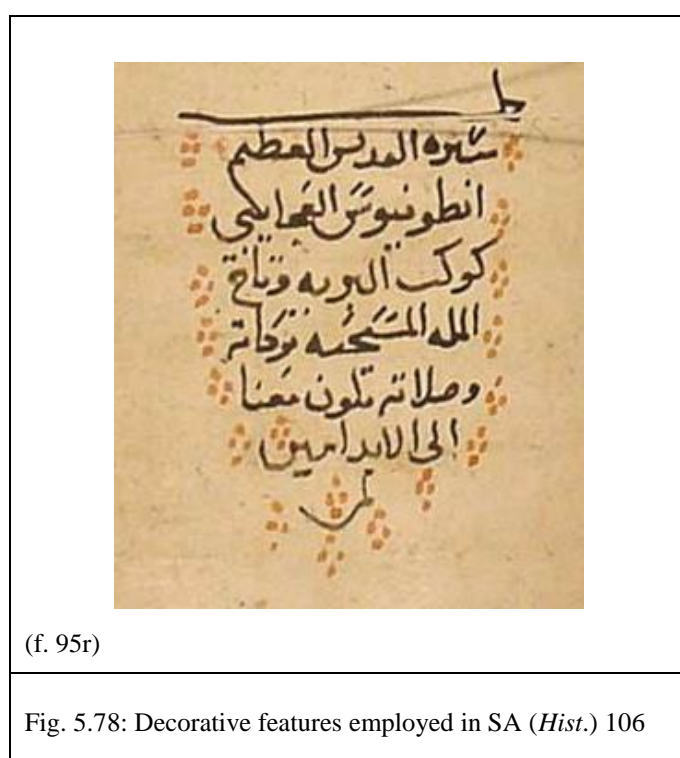 سيره القديس العظيم
انطونيوس
كوكب البريه وتاج
المله المسيحيه بركاته
وصلاته تكون معنا
الى الابد امين
(f. 95r)
Fig. 5.78: Decorative features employed in SA (Hist.) 106